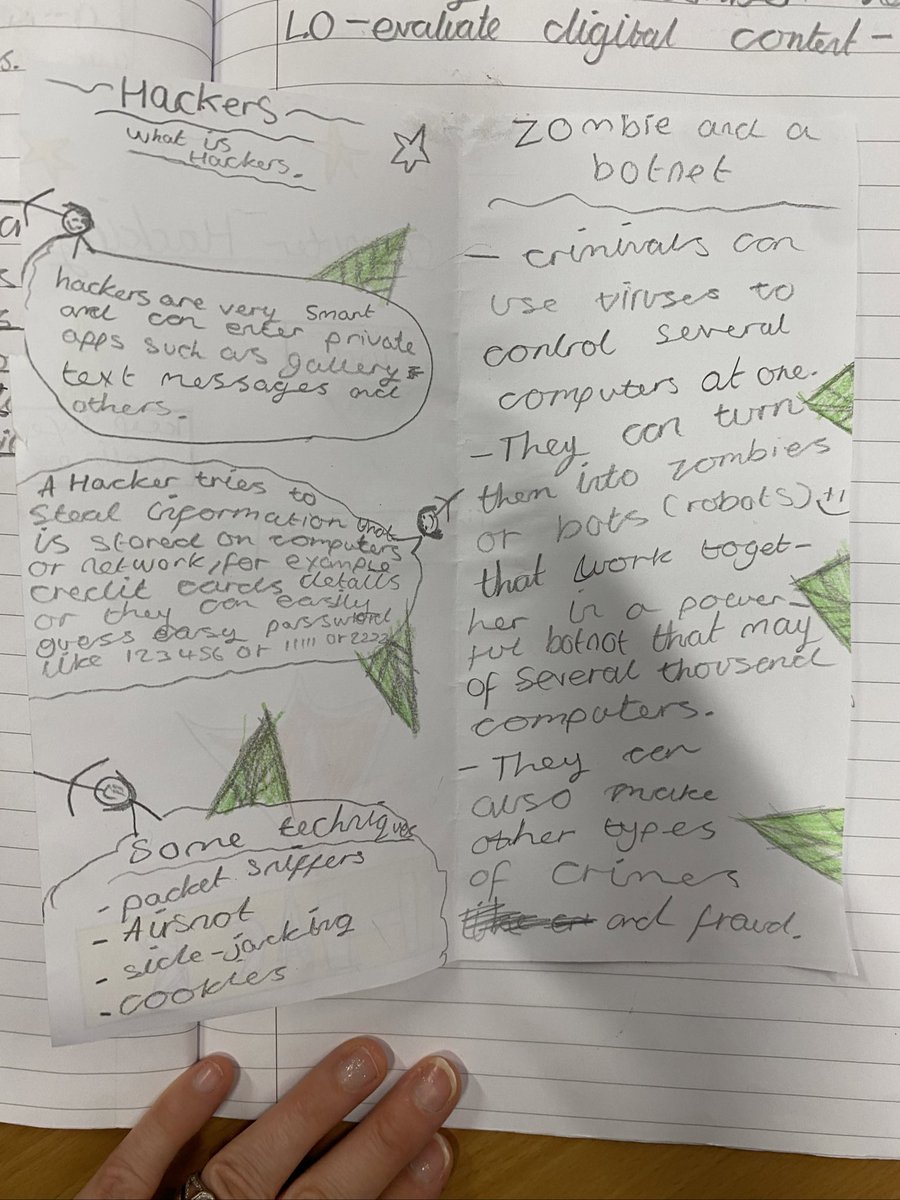 LO-evaluate digital content-
Hackers
What is
Hackers.
hackers are very smart
and can enter private
apps such as gallery
text messages and
others.
A Hacker tries to
steal information that
is stored on computers
or network, for example
credit cards details
or they can easily
guess easy password
like 123456 or 11111 or 2222
Some techniques
- packet sniffers
- Airsnot
- side-jacking
- cookies
Zombie and a
botnet
- criminals can
use viruses to
control several
computers at one.
- They can turn
them into zombies
or bots (robots)
that work toget-
her in a power-
ful botnot that may
of several thousend
computers.
- They can
also make
other types
of crimes
and fraud.